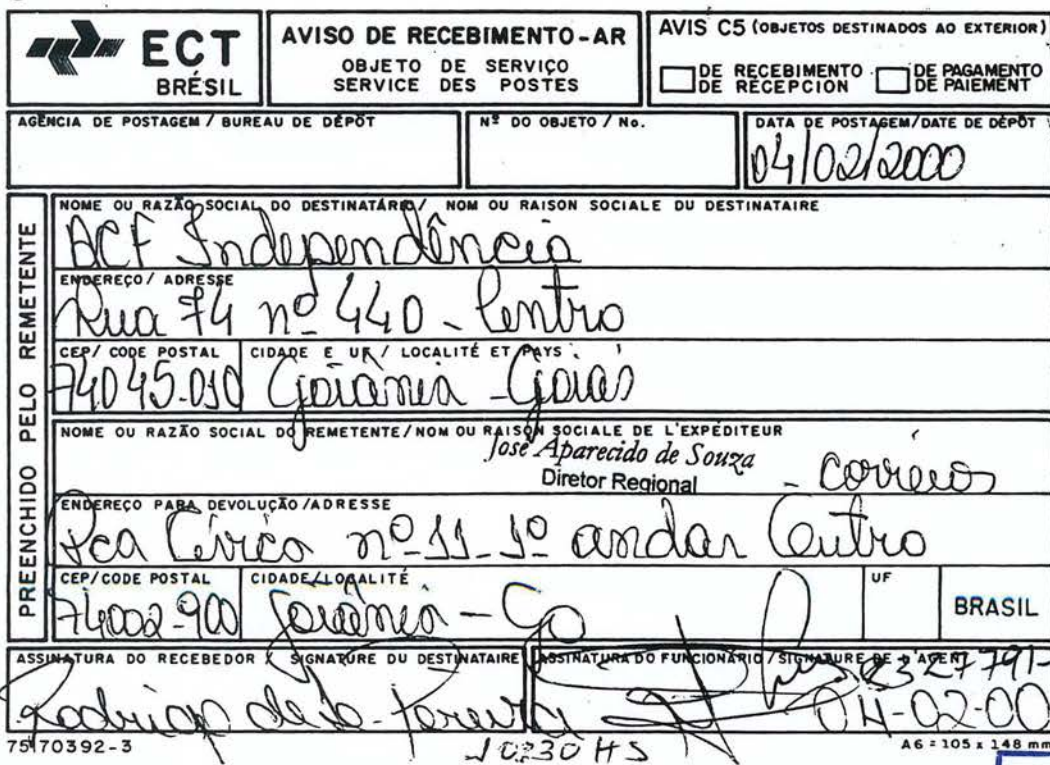 ECT
BRÉSIL
AVISO DE RECEBIMENTO-AR
OBJETO DE SERVIÇO
SERVICE DES POSTES
AVIS C5 (OBJETOS DESTINADOS AO EXTERIOR)
DE RECEBIMENTO DE PAGAMENTO
DE RÉCEPCION DE PAIEMENT
AGÊNCIA DE POSTAGEM / BUREAU DE DÉPÔT
Nº DO OBJETO / No.
DATA DE POSTAGEM/DATE DE DÉPÔT
04/02/2000
PREENCHIDO PELO REMETENTE
NOME OU RAZÃO SOCIAL DO DESTINATÁRIO/ NOM OU RAISON SOCIALE DU DESTINATAIRE
ACF Independência
ENDEREÇO/ ADRESSE
Rua 74 nº 440 - Centro
CEP/ CODE POSTAL CIDADE E UF / LOCALITÉ ET PAYS
74045-010 Goiânia - Goiás
NOME OU RAZÃO SOCIAL DO REMETENTE/NOM OU RAISON SOCIALE DE L'EXPÉDITEUR
José Aparecido de Souza
Diretor Regional - Correios
ENDEREÇO PARA DEVOLUÇÃO/ADRESSE
Pca Cívica nº 11 - 1º andar Centro
CEP/CODE POSTAL CIDADE/LOCALITÉ UF
74002-900 Goiânia - Go
BRASIL
ASSINATURA DO RECEBEDOR / SIGNATURE DU DESTINATAIRE
ASSINATURA DO FUNCIONÁRIO/SIGNATURE DE L'AGENT
Rodrigo de
04-02-00
75170392-3
10:30 HS
A6 = 105 x 148 mm